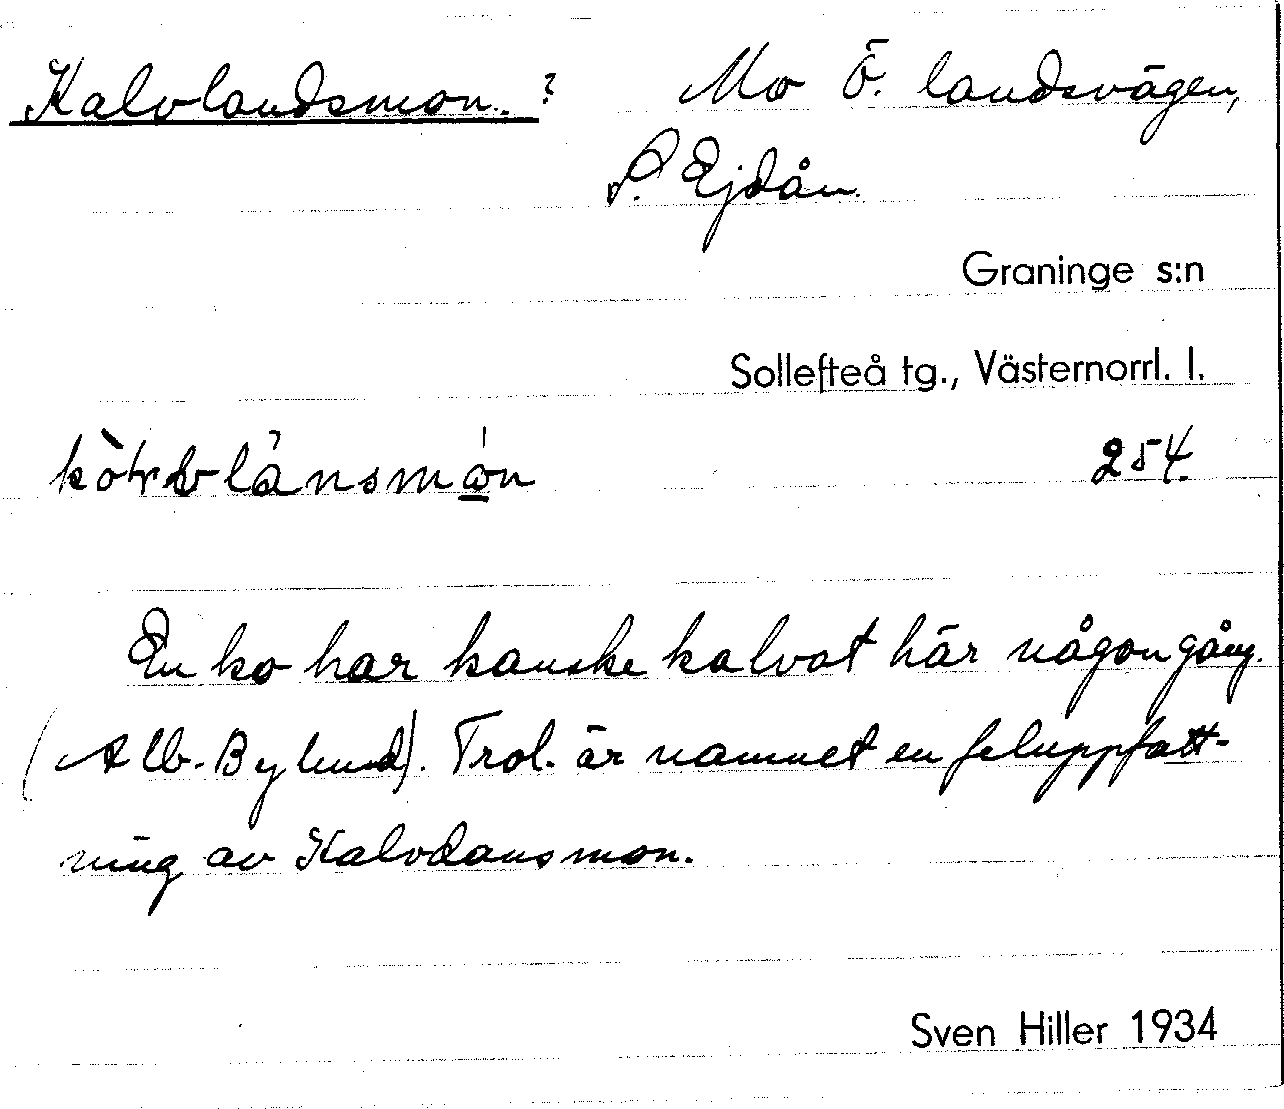 Kalvlandsmon. ? Mo Ö. landsvägen,
S. Ejdån.
Graninge s:n
Sollefteå tg., Västernorrl. l.
254.
En ko har kanske kalvat här någon gång.
(Alb. Bylund). Trol. är namnet en feluppfatt-
ning av Kalvdansmon.
Sven Hiller 1934